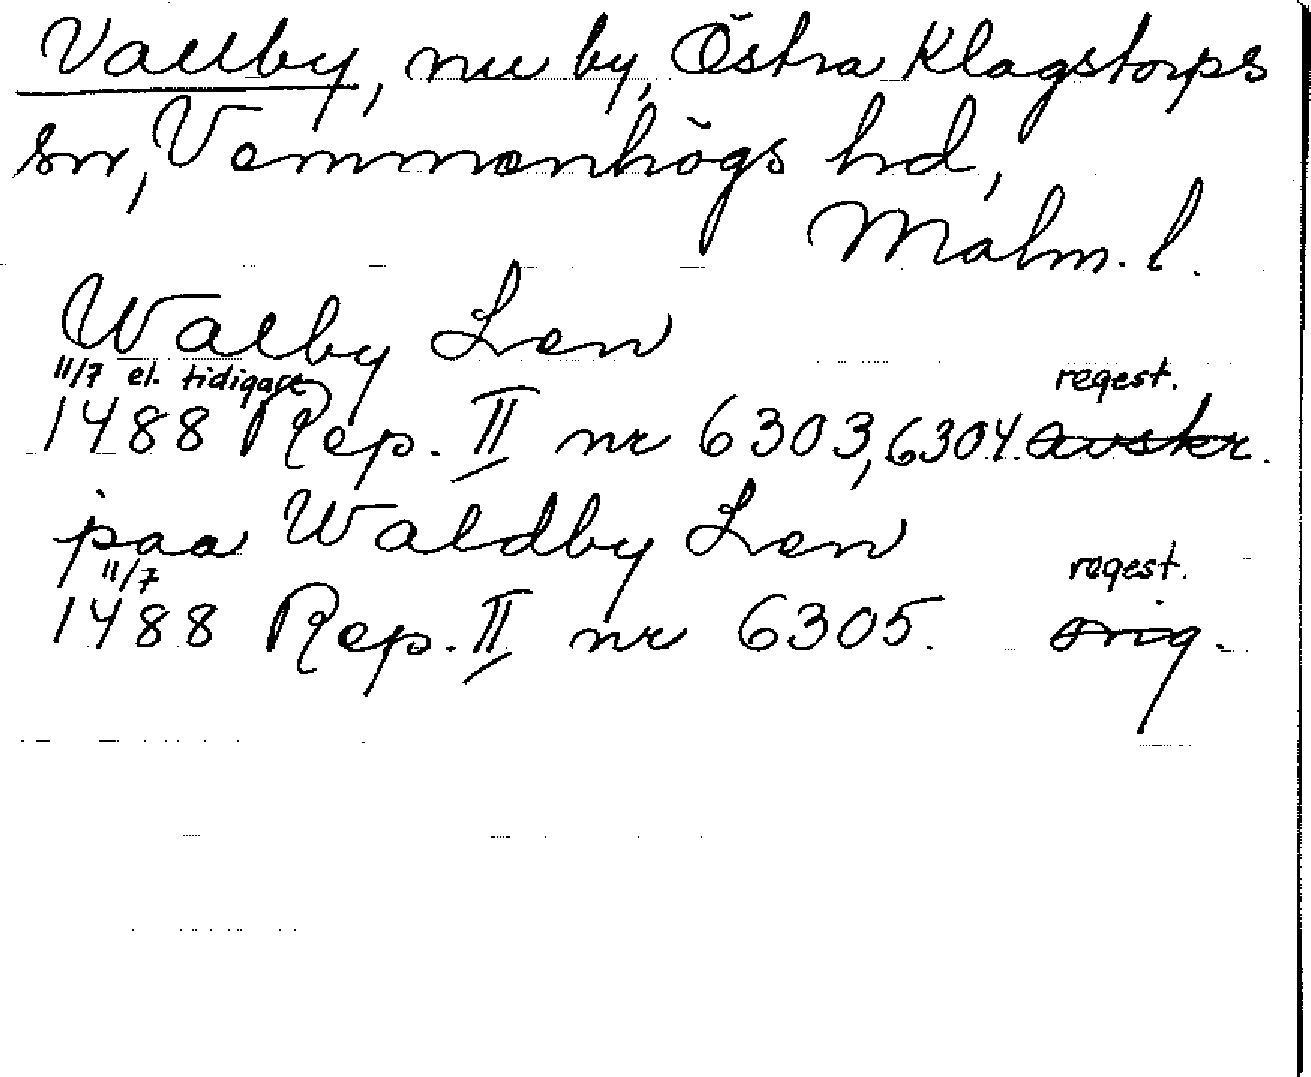 Vallby, nu by, Östra Klagstorps
sn, Vemmenhögs hd,
Malm. l.
Walby Len
11/7 el. tidigare regest.
1488 Rep. II nr 6303, 6304. avskr.
paa Waldby Len
11/7 regest.
1488 Rep. II nr 6305. orig.